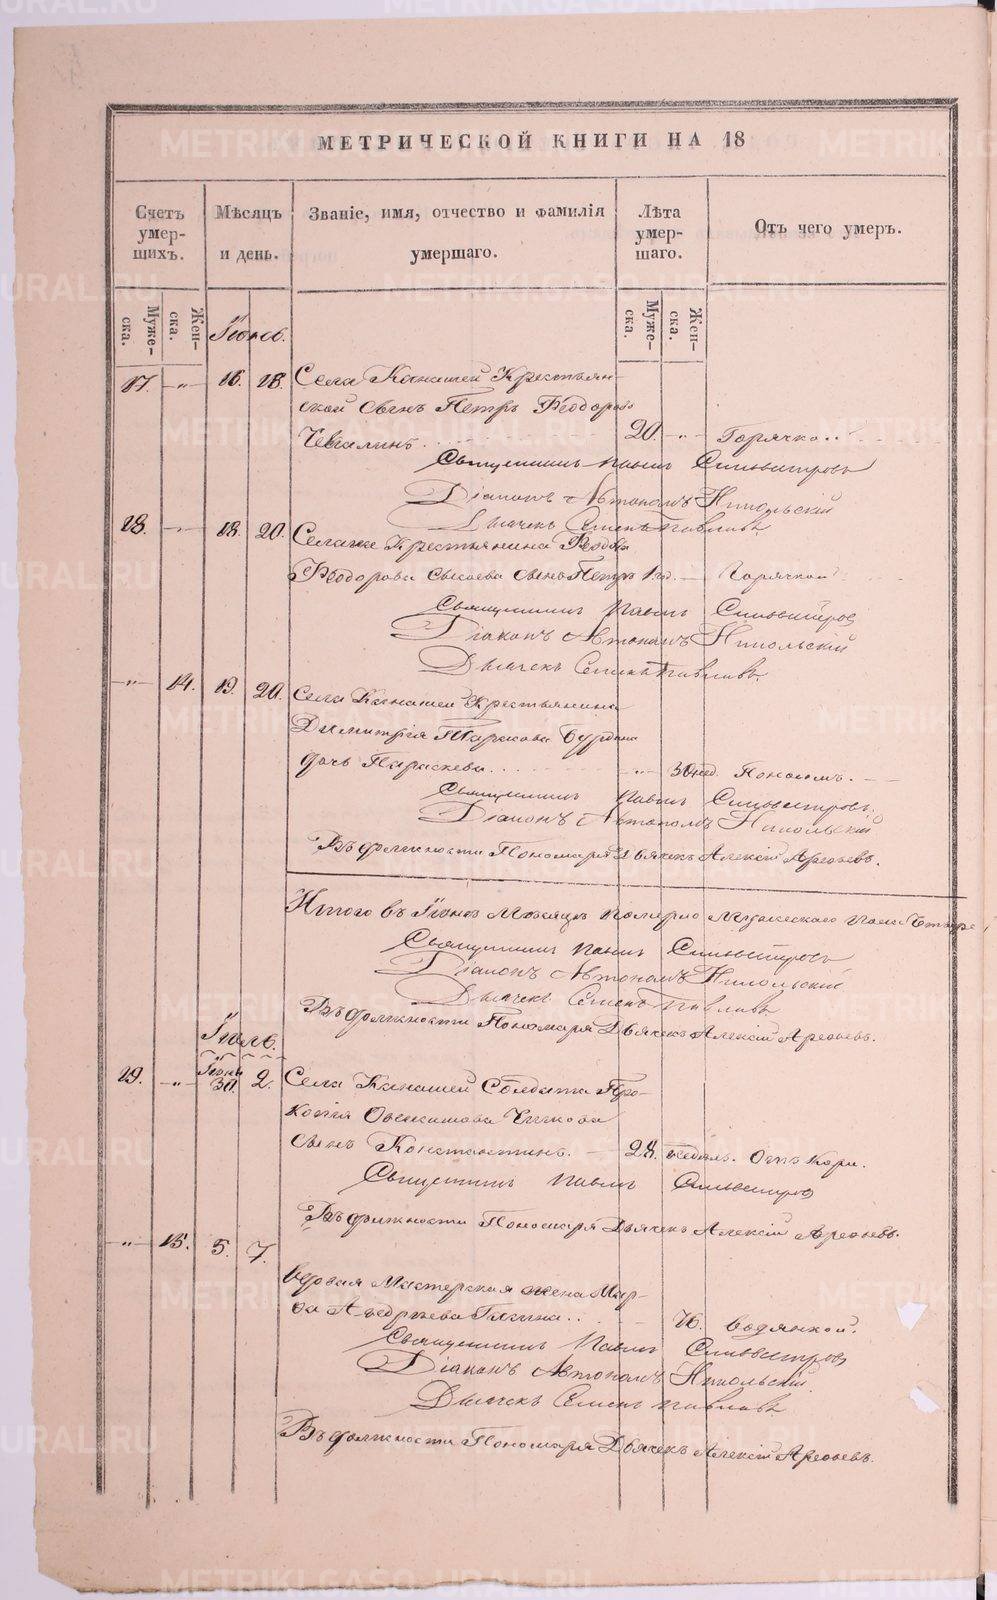 МЕТРИЧЕСКОЙ КНИГИ НА 18
Счетъ умер-шихъ.
Мѣсяцъ и день.
Званіе, имя, отчество и фамилія умершаго.
Лѣта умер-шаго.
Отъ чего умеръ.
Муже-ска.
Жен-ска.
Муже-ска.
Жен-ска.
Іюнь.
17. 16. 18. Села Канашей Крестьян-
ской сынъ Петръ Ѳеодоровъ
20. Горячкой
Священникъ Павелъ Сильвестровъ
Діаконъ Автономъ Никольскій
Дьячекъ Семенъ Павловъ
18. 18. 20. Крестьянина
Ѳеодорова сынъ Петръ 1 год. Горячкой
Священникъ Павелъ Сильвестровъ
Діаконъ Автономъ Никольскій
Дьячекъ Семенъ Павловъ.
14. 19. 20. Села Канашей Крестьянина
Димитрія Тарасова
дочь Параскева 30 нед. Поносомъ.
Священникъ Павелъ Сильвестровъ.
Діаконъ Автономъ Никольскій
Въ должности Пономаря Дьячекъ Алексій Арефьевъ.
Итого въ Іюнѣ Мѣсяцѣ померло Мужескаго пола
Священникъ Павелъ Сильвестровъ
Діаконъ Автономъ Никольскій
Дьячекъ Семенъ Павловъ
Въ должности Пономаря Дьячекъ Алексій Арефьевъ.
Іюль.
19. Іюня 30. 2. Села Канашей Солдата Про-
копія
сынъ Константинъ. 24. недѣль. Отъ кори.
Священникъ Павелъ Сильвестровъ
Въ должности Пономаря Дьячекъ Алексій Арефьевъ.
15. 5. 7.
Вдовая Мастерская жена
76. Водянкой.
Священникъ Павелъ Сильвестровъ
Діаконъ Автономъ Никольскій.
Дьячекъ Семенъ Павловъ
Въ должности Пономаря Дьячекъ Алексій Арефьевъ.
METRIKI.GASO-URAL.RU